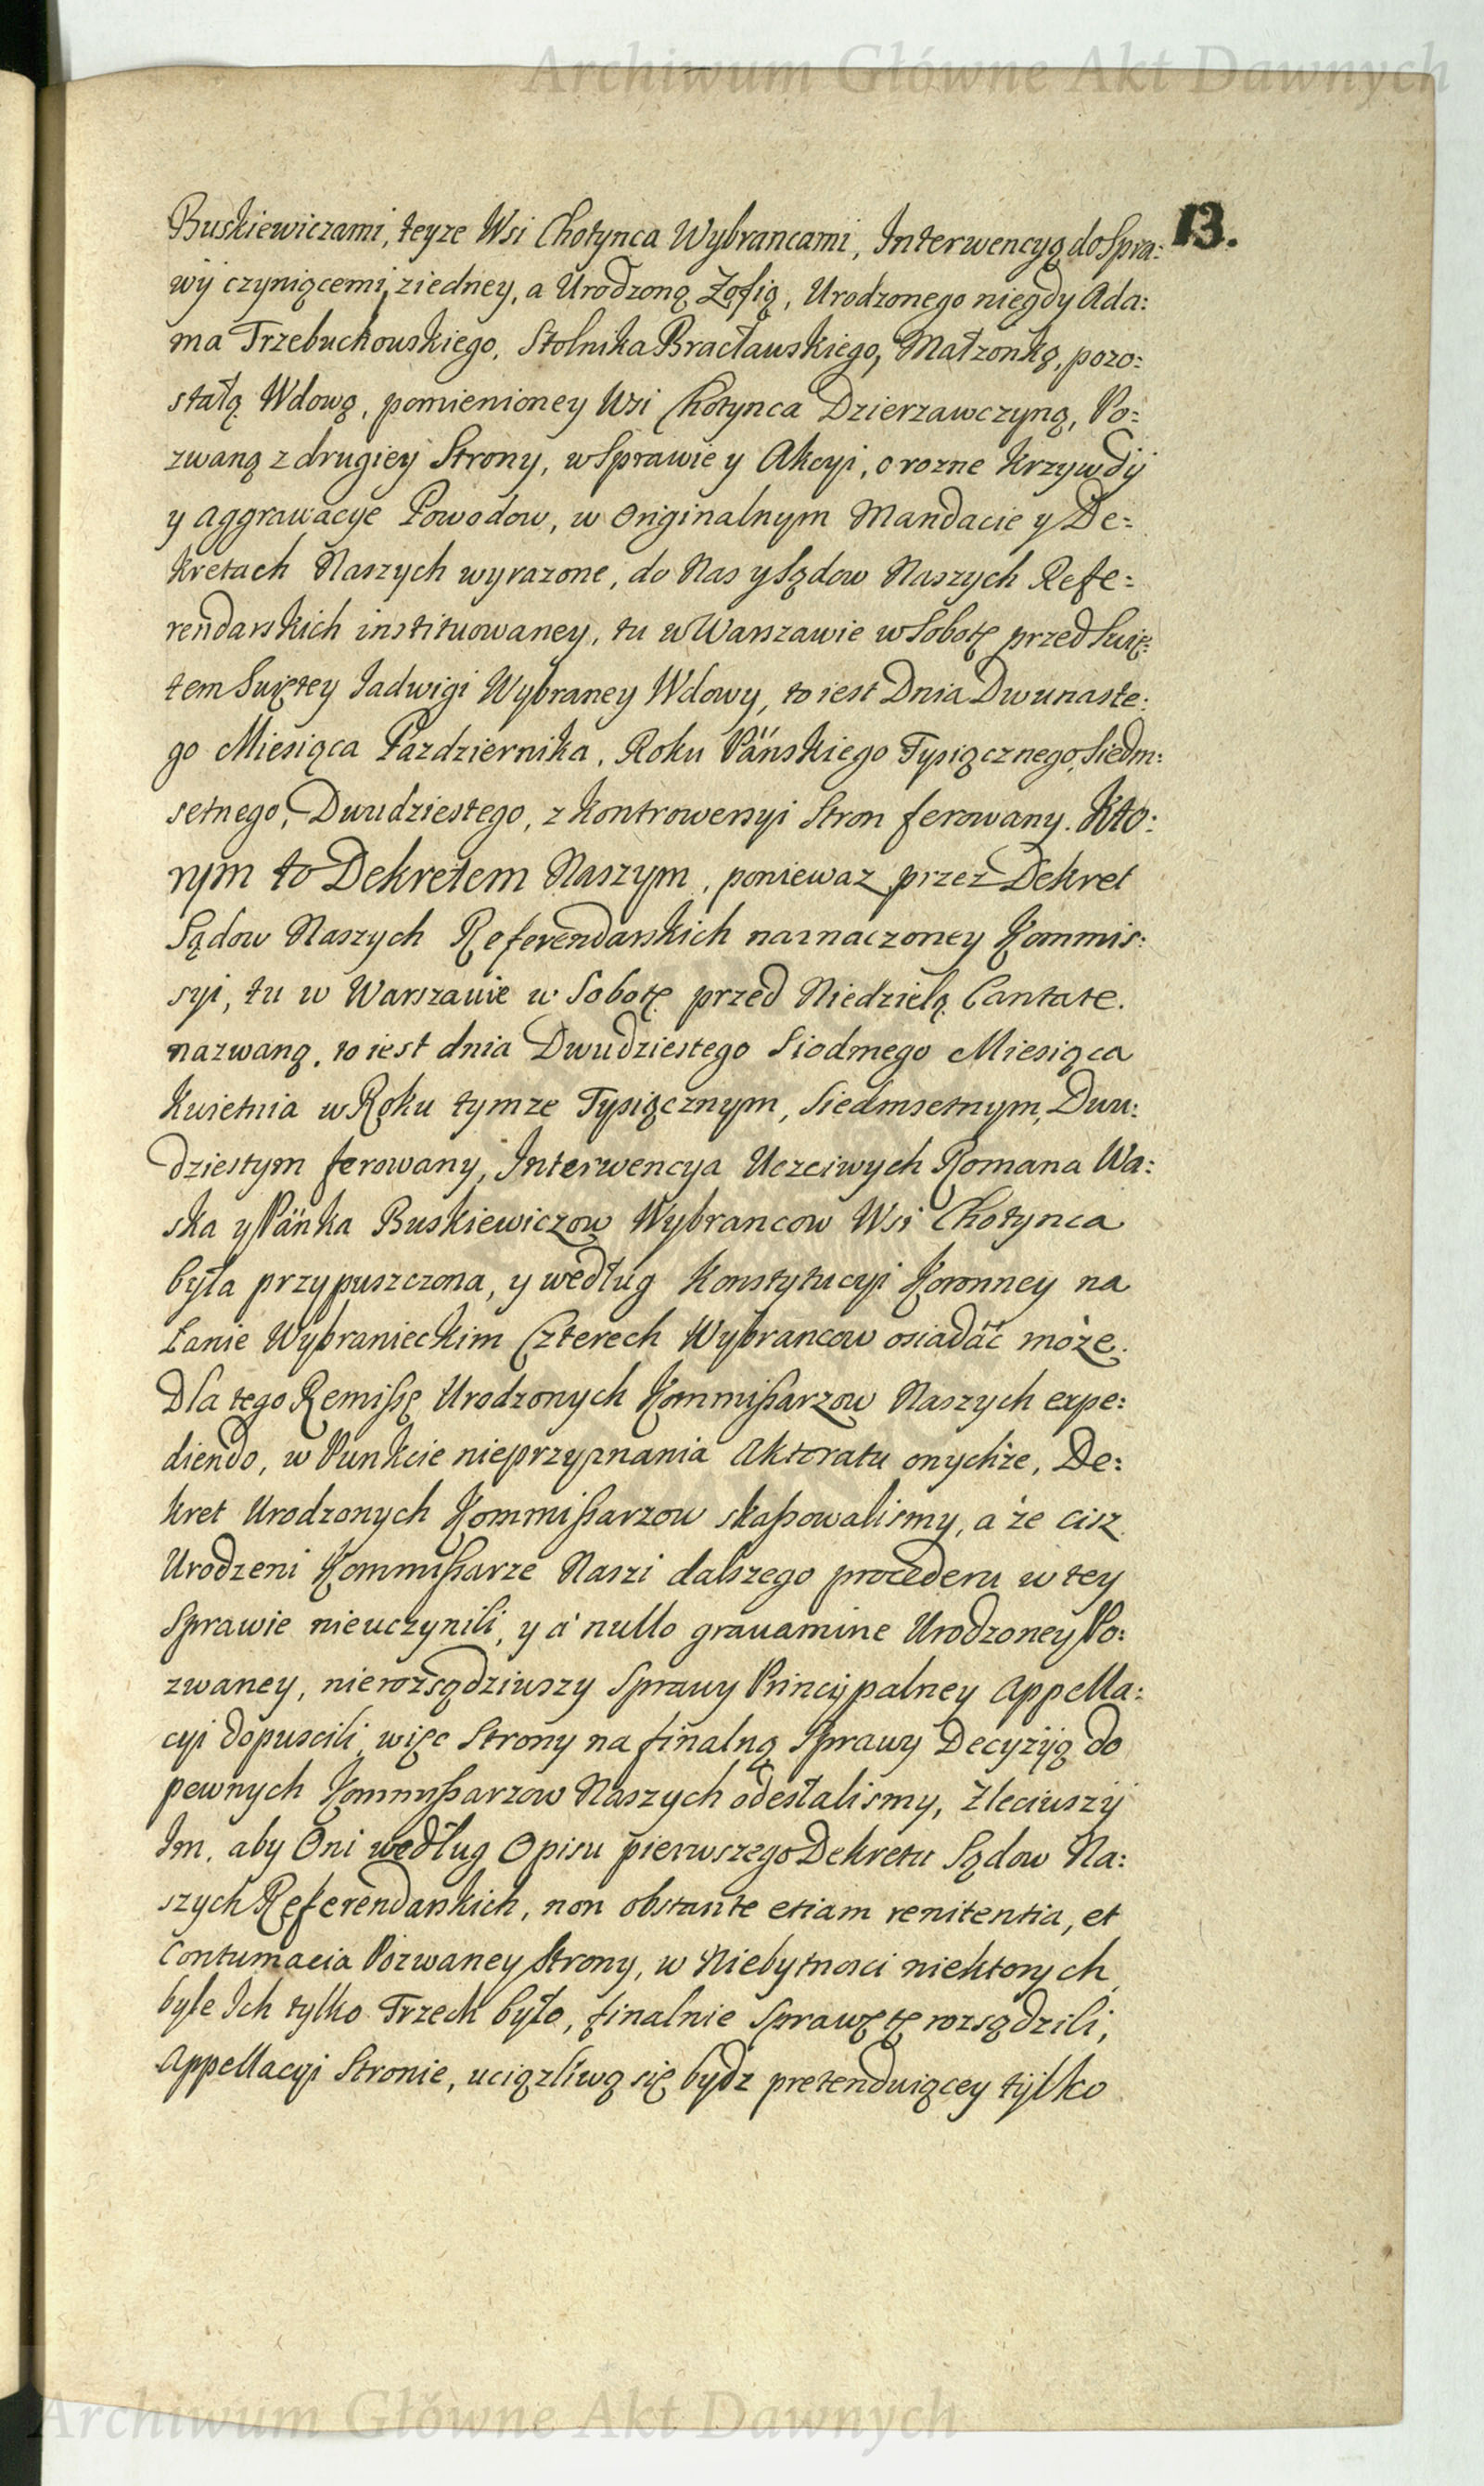 Archiwum Główne Akt Dawnych
13.
Buskiewiczami, teyze Wsi Chotynca Wybrancami, Interwencyą do Spra:
wÿ czyniącemi, ziedney, a Urodzoną Zofią, Urodzonego niegdy Ada:
ma Trzebuchowskiego, Stolnika Bracławskiego, Małzonką, pozo:
stałą Wdową, pomienioney Wsi Chotynca Dzierzawczyną, Po:
zwaną z drugieÿ Strony, w Sprawie y Akcyi, o rozne Krzywdÿ
y Aggrawacye Powodow, w Originalnym Mandacie y De:
kretach Naszych wyrazone, do Nas y Sądow Naszych Refe:
rendarskich instituowaney, tu w Warszawie w Sobotę przed Swię:
tem Swiętey Jadwigi Wybraney Wdowy, to iest Dnia Dwunaste:
go Miesiąca Pazdziernika, Roku Pańskiego Tysiącznego, Siedm:
setnego, Dwudziestego, z Kontrowersyi Stron ferowany. Kto:
rym to Dekretem Naszym, poniewaz przez Dekret
Sądow Naszych Referendarskich naznaczoney Kommis:
syi, tu w Warszawie w Sobotę przed Niedzielą Cantate.
nazwaną, to iest dnia Dwudziestego Siodmego Miesiąca
Kwietnia w Roku tymze Tysiącznym, Siedmsetnym, Dwu:
dziestym ferowany, Interwencya Uczciwych Romana Wa:
ska y Pańka Buskiewiczow Wybrancow Wsi Chotynca
była przypuszczona, y według Konstytucyi Koronney na
Łanie Wybranieckim Czterech Wybrancow osiadać może.
Dla tego Remissę Urodzonych Kommissarzow Naszych expe:
diendo, w Punkcie nieprzyznania Aktoratu onychże, De:
kret Urodzonych Kommissarzow skassowalismy, a że cisz
Urodzeni Kommissarze Naszi dalszego procederu w tey
Sprawie nieuczynili, y a nullo gravamine Urodzoney Po:
zwaney, nierozsądziwszy Sprawy Principalney Appella:
cyi dopuscili, więc Strony na finalną Sprawy Decyzÿą do
pewnych Kommissarzow Naszych odesłalismy, Zleciwszÿ
Im, aby Oni według Opisu pierwszego Dekretu Sądow Na:
szych Referendarskich, non obstante etiam renitentia, et
Contumacia Pozwaney Strony, w Niebytnosci niektorych,
byle Ich tylko Trzech było, finalnie Sprawę tę rozsądzili,
Appellacyi Stronie, uciązliwą się bydz pretenduiącey tÿlko
Archiwum Główne Akt Dawnych